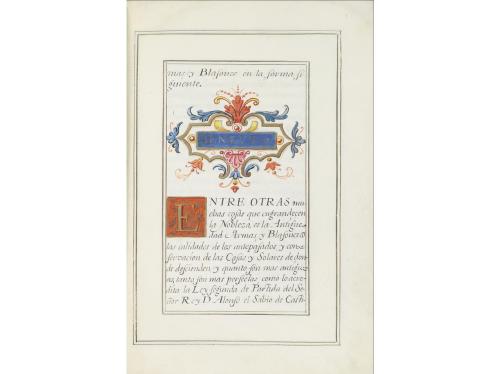 mas, y Blasones en la forma si
guiente.
ENTRE OTRAS mu
chas cosas que engrandecen
la Nobleza, es la Antigue
dad Armas, y Blasones
las calidades de los antepasados y con
servacion de las Casas y Solares de don
de descienden y quanto son mas antiguo
as, tanto son mas perfectas como lo acre
dita la Ley segunda de Partida del Se
ñor Rey Dn. Alonso el Sabio de Casti-